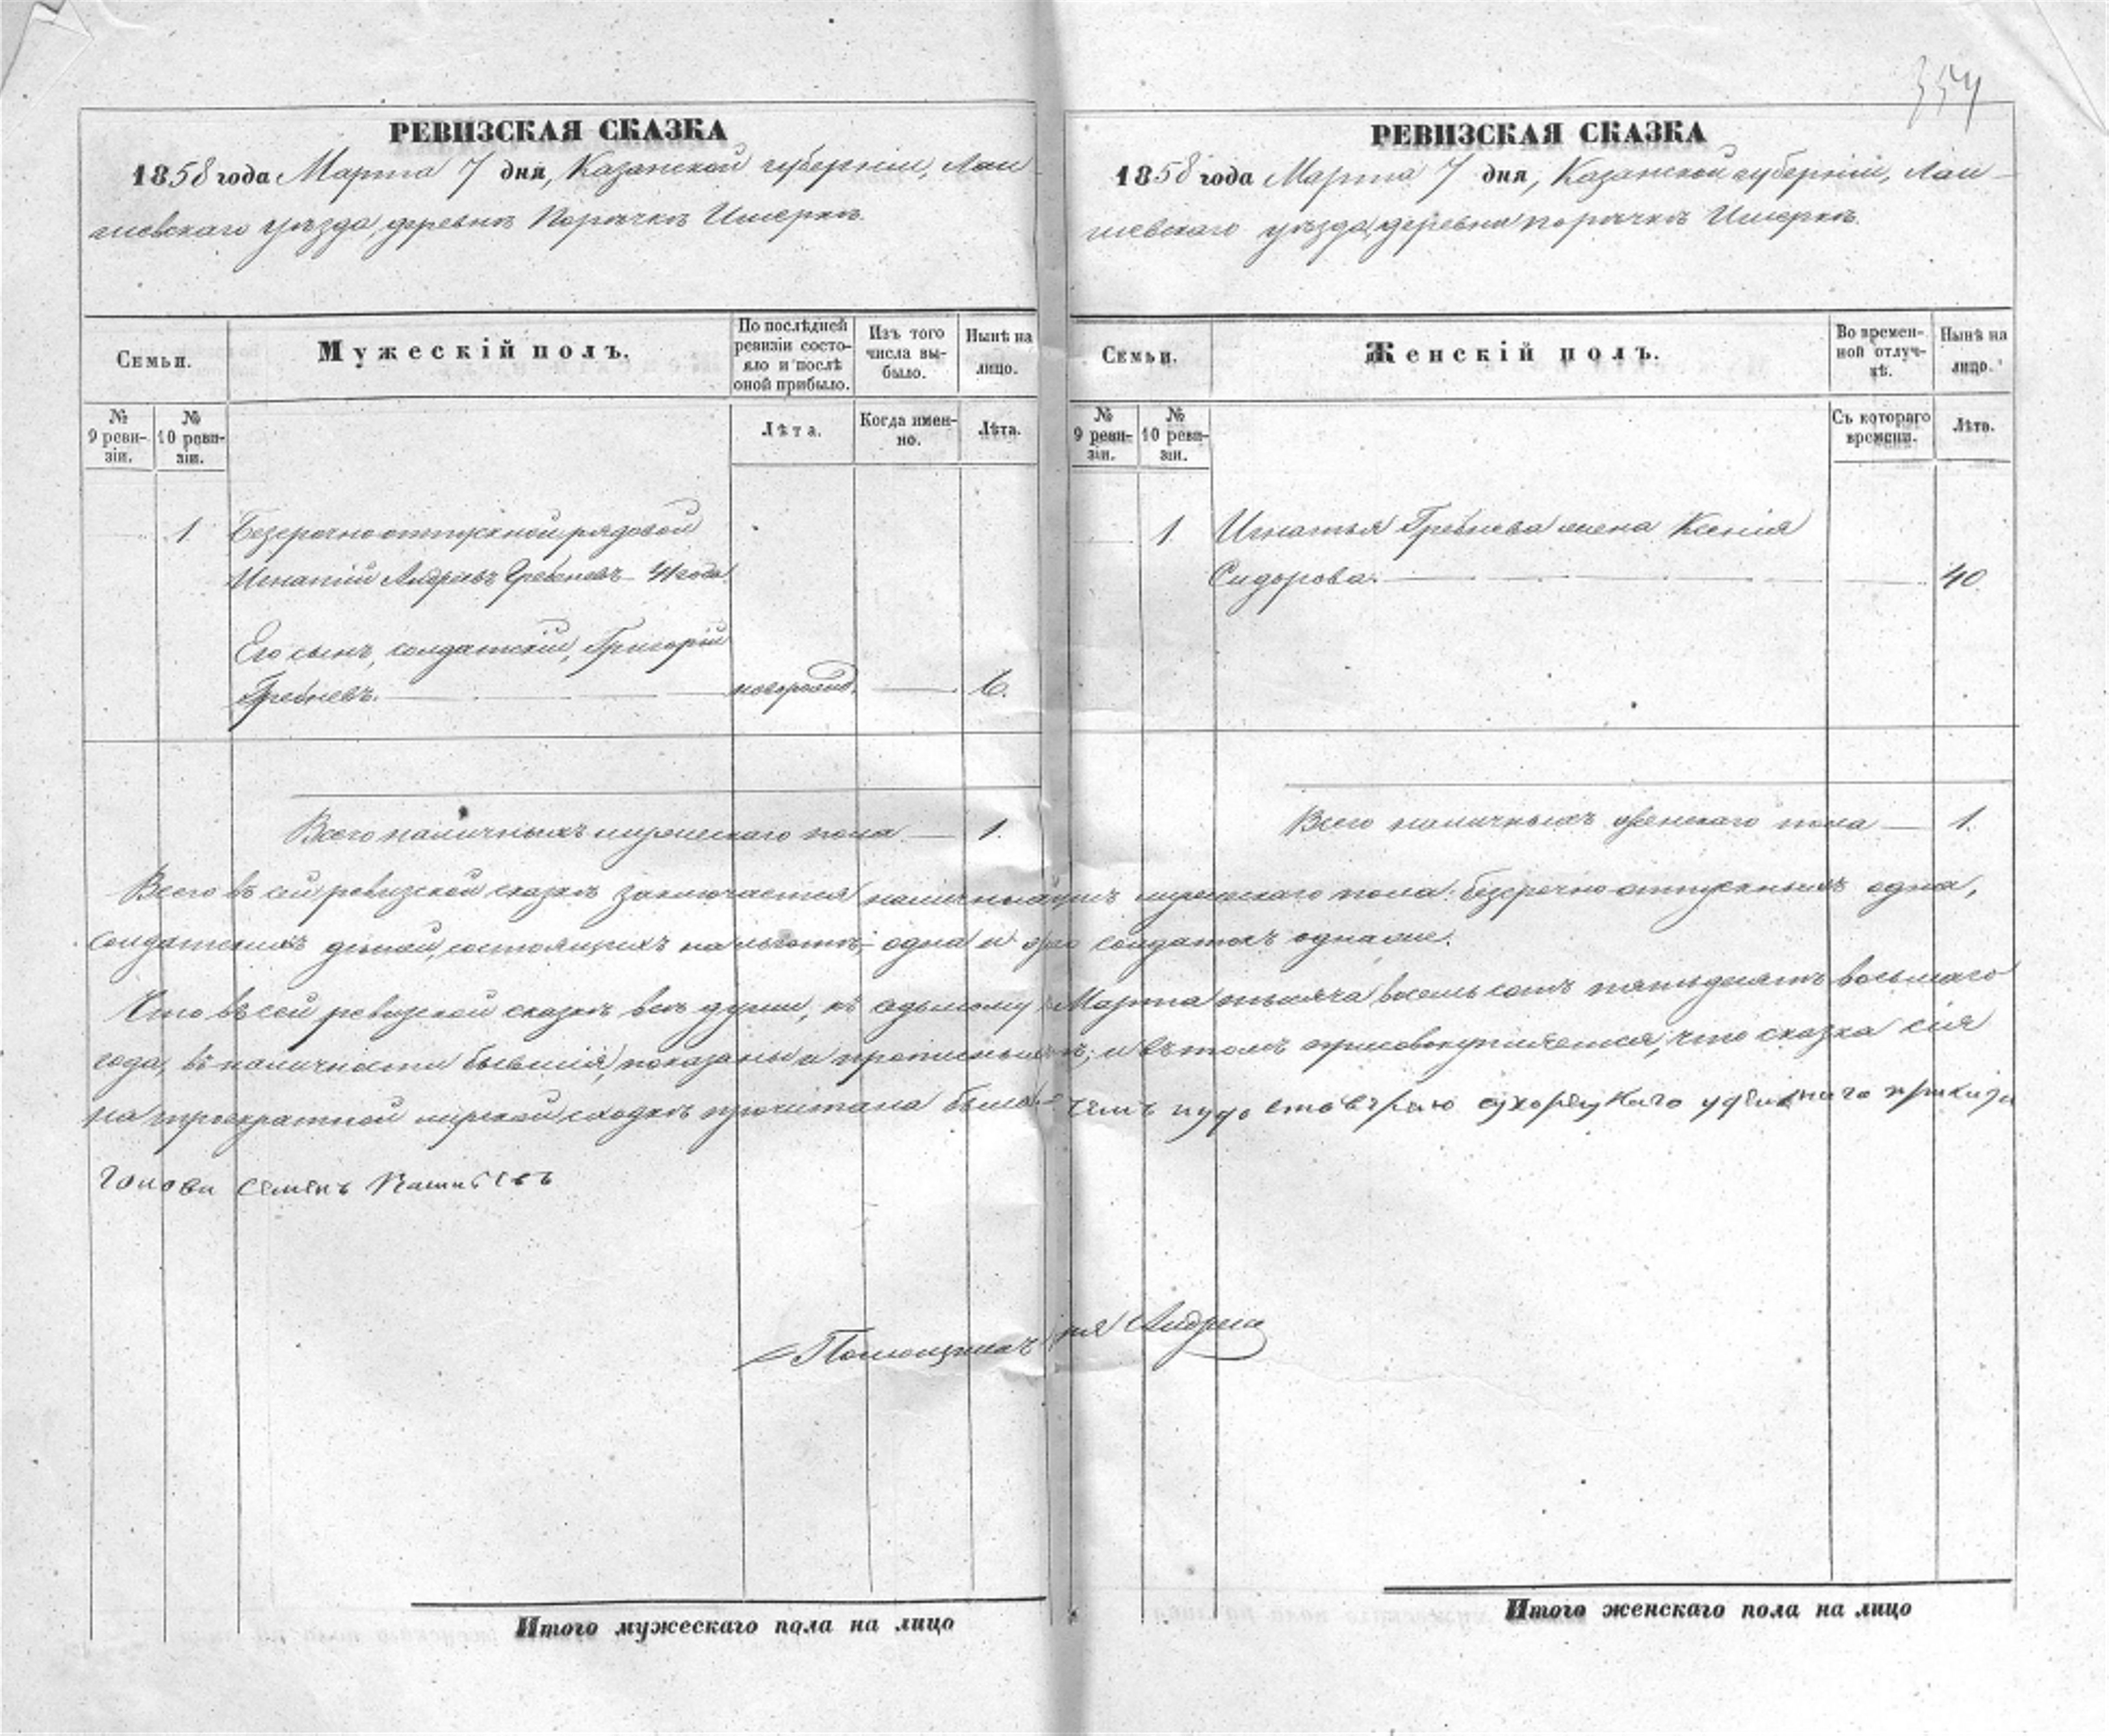 354
РЕВИЗСКАЯ СКАЗКА
1858 года Марта 7 дня, Казанской губерніи, Лаи-
шевскаго уѣзда, деревни Порѣчки Ишерки.
Семьи.
Мужескій полъ.
По послѣдней ревизіи состояло и послѣ оной прибыло.
Изъ того числа выбыло.
Нынѣ на лицо.
№ 9 ревизіи.
№ 10 ревизіи.
Лѣта.
Когда именно.
Лѣта.
1 Безсрочноотпускной рядовой
Игнатій Андреевъ Гребневъ 41 года.
Его сынъ, солдатскій, Григорій
Гребневъ. новорожд. 6.
Всего наличныхъ мужескаго пола 1.
РЕВИЗСКАЯ СКАЗКА
1858 года Марта 7 дня, Казанской губерніи, Лаи-
шевскаго уѣзда, деревни Порѣчки Ишерки.
Семьи.
Женскій полъ.
Во временной отлучкѣ.
Нынѣ на лицо.
№ 9 ревизіи.
№ 10 ревизіи.
Съ котораго времени.
Лѣта.
1. Игнатья Гребнева жена Ксенія
Сидорова. 40
Всего наличныхъ женскаго пола 1.
Всего въ сей ревизской сказкѣ заключается наличныхъ мужескаго пола: безсрочноотпускныхъ одна,
солдатскихъ дѣтей, состоящихъ на льготѣ, одна и солдатокъ одна же.
Что въ сей ревизской сказкѣ всѣ души, къ седьмому Марта тысяча восемь сотъ пятьдесятъ восьмаго
года, въ наличности бывшія, показаны и прописныхъ и въ томъ присовокупляется, что сказка сія
на троекратной мирской сходкѣ прочитана была чемъ удостоверяю удельнаго приказа
голова Семенъ
Помощникъ
Итого мужескаго пола на лицо
Итого женскаго пола на лицо